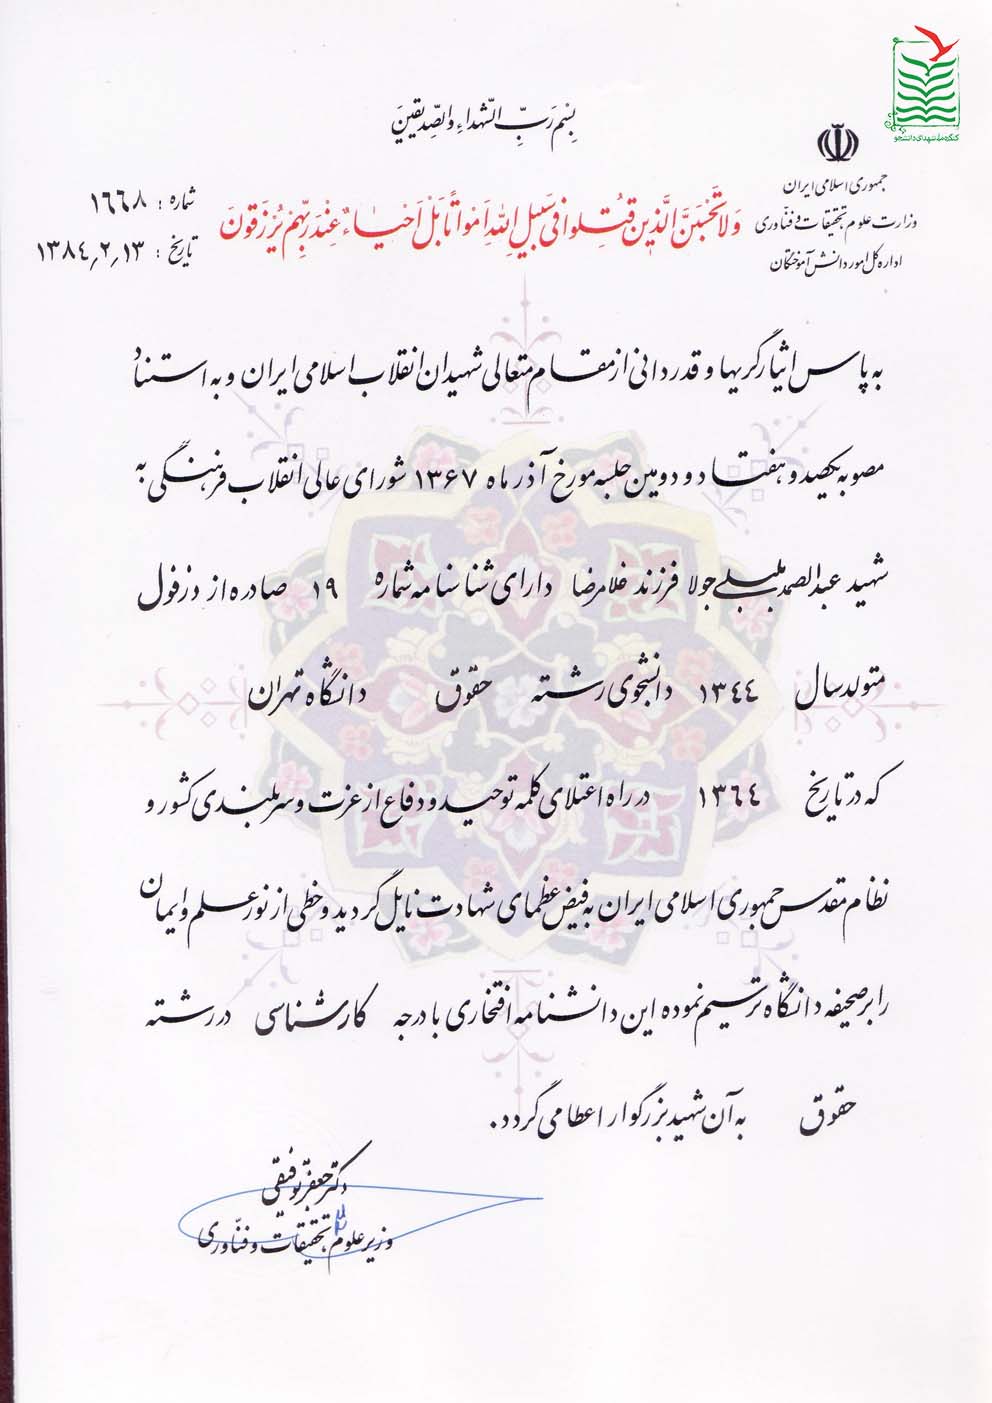 کنگره ملی شهدای دانشجو
بِسْمِ رَبِّ الشُّهداءِ وَالصِّدیقینَ
جمهوری اسلامی ایران
وزارت علوم تحقیقات و فنّاوری
اداره کل امور دانش آموختگان
شماره : ۱۶۶۸
تاریخ : ۱۳۸۴٫۲٫۱۳
وَلاتَحْسَبَنَّ الَّذینَ قُتِلوا فی سَبیلِ اللّهِ اَمْواتاً بَلْ اَحْیاءٌ عِنْدَ رَبِّهِمْ یُرْزَقونَ
به پاس ایثارگریها و قدردانی از مقام متعالی شهیدان انقلاب اسلامی ایران و به استناد
مصوبه یکصد و هفتاد و دومین جلسه مورخ آذر ماه ۱۳۶۷ شورای عالی انقلاب فرهنگی به
شهید عبدالصمد بلبلی جولا فرزند غلامرضا دارای شناسنامه شماره ۱۹ صادره از دزفول
متولد سال ۱۳۴۴ دانشجوی رشته حقوق دانشگاه تهران
که در تاریخ ۱۳۶۴ در راه اعتلای کلمه توحید و دفاع از عزت و سربلندی کشور و
نظام مقدس جمهوری اسلامی ایران به فیض عظمای شهادت نایل گردید و خطی از نور علم و ایمان
را بر صحیفه دانشگاه ترسیم نموده این دانشنامه افتخاری با درجه کارشناسی در رشته
حقوق به آن شهید بزرگوار اعطا می گردد.
دکتر جعفر توفیقی
وزیر علوم، تحقیقات و فنّاوری